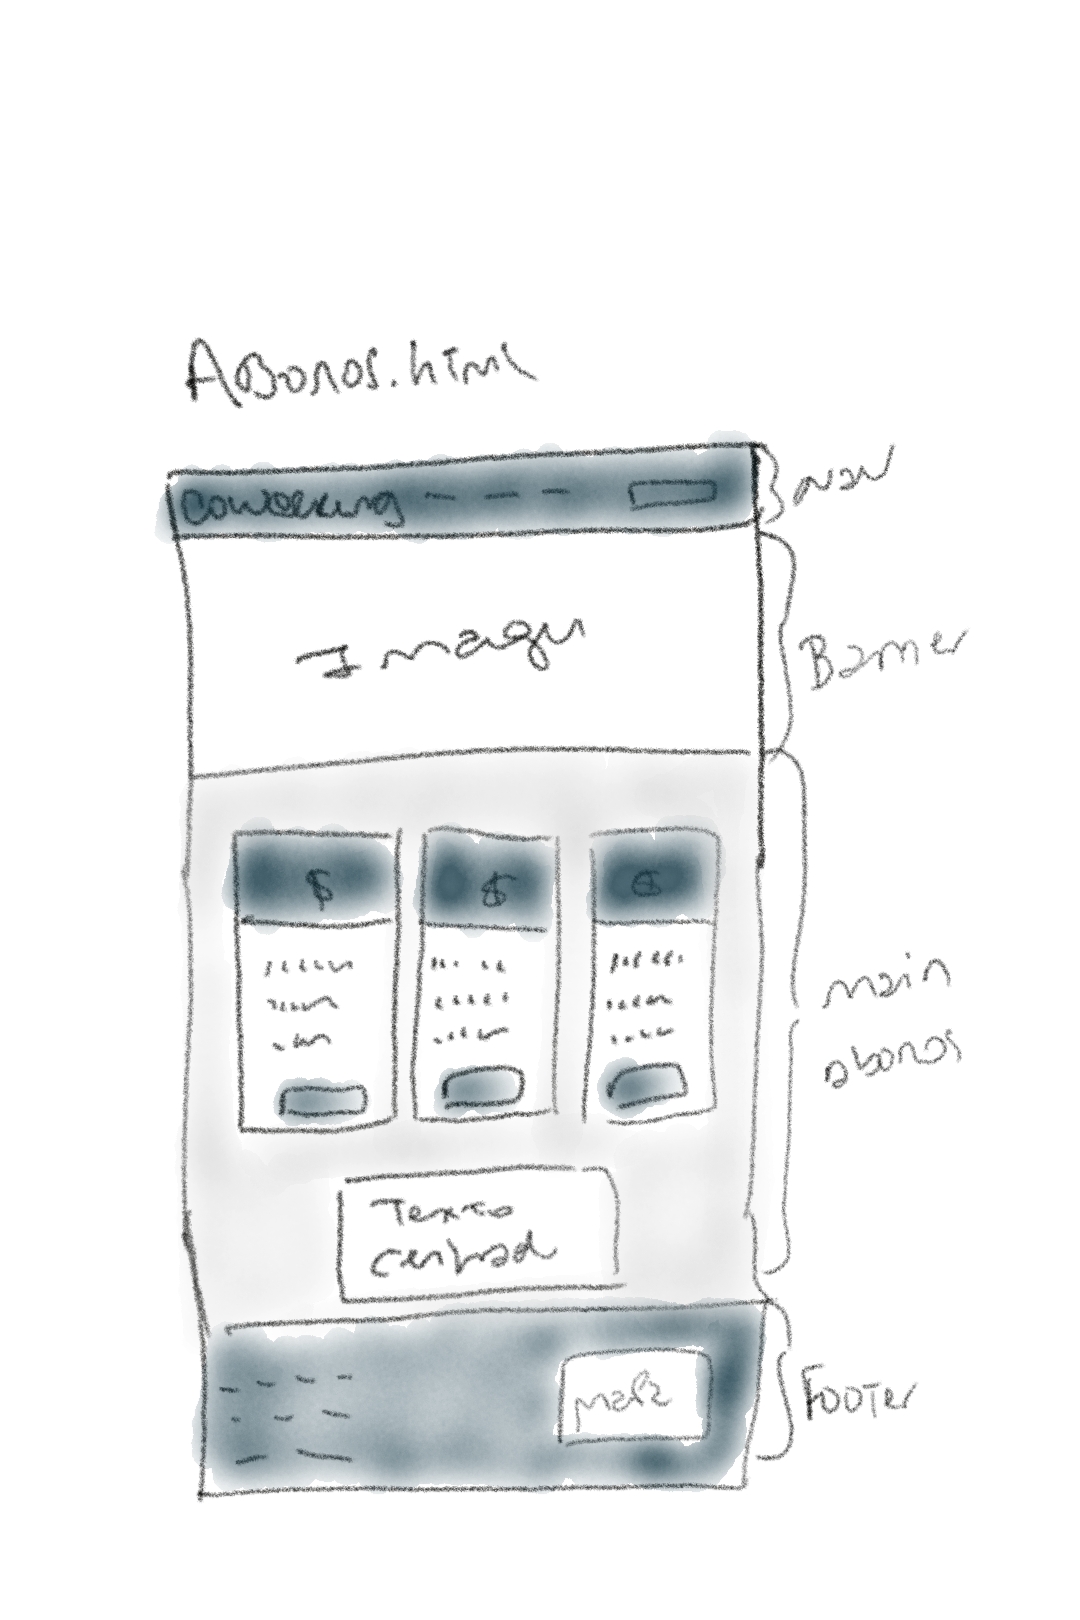 ABonos.html
coworking
nav
Imagen
Banner
$ $ $
main
abonos
Texto
centrad
mapa
Footer